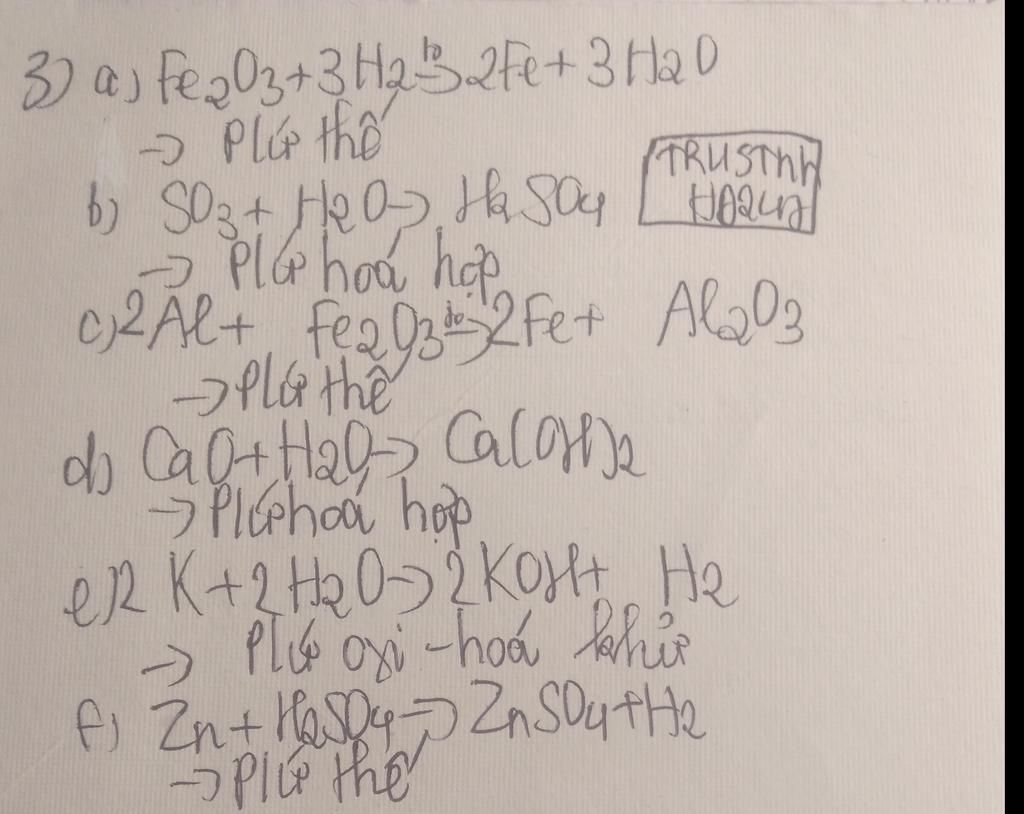 3) a) Fe2O3 + 3H2 to→ 2Fe + 3H2O
→ Pứ thế
b) SO3 + H2O → H2SO4
TRUSTnh
HA2LN
→ Pứ hoá hợp
c) 2Al + Fe2O3 to→ 2Fe + Al2O3
→ Pứ thế
d) CaO + H2O → Ca(OH)2
→ Pứ hoá hợp
e) 2K + 2H2O → 2KOH + H2
→ Pứ oxi-hoá khử
f) Zn + H2SO4 → ZnSO4 + H2
→ Pứ thế